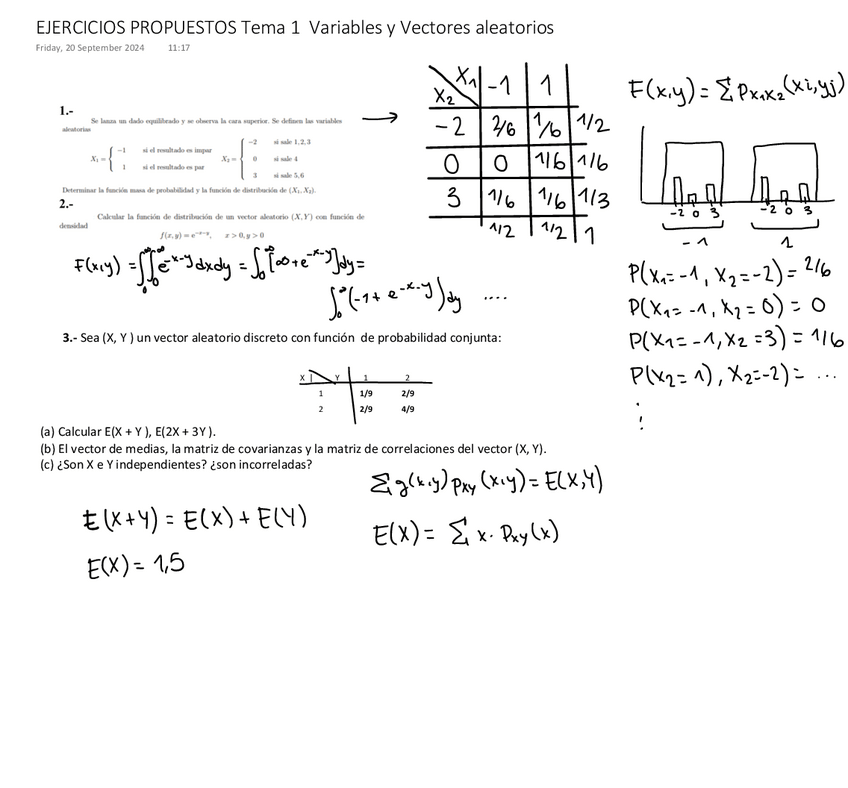 EJERCICIOS PROPUESTOS Tema 1 Variables y Vectores aleatorios
Friday, 20 September 2024 11:17
1.-
Se lanza un dado equilibrado y se observa la cara superior. Se definen las variables
aleatorias
X₁ = { -1 si el resultado es impar
1 si el resultado es par
X₂ = { -2 si sale 1,2,3
0 si sale 4
3 si sale 5,6
Determinar la función masa de probabilidad y la función de distribución de (X₁, X₂).
→
X₂ \ X₁ | -1 | 1 |
-2 | 2/6 | 1/6 | 1/2
0 | 0 | 1/6 | 1/6
3 | 1/6 | 1/6 | 1/3
| 1/2 | 1/2 | 1
F(x,y) = Σ Px₁x₂(xi,yj)
-2 0 3 -2 0 3
-1 1
P(X₁=-1, X₂=-2) = 2/6
P(X₁=-1, X₂=0) = 0
P(X₁=-1, X₂=3) = 1/6
P(X₂=1), X₂=-2) = ...
⋮
2.-
Calcular la función de distribución de un vector aleatorio (X,Y) con función de
densidad
f(x,y) = e^{-x-y}, x > 0, y > 0
F(x,y) = ∫₀^∞∫₀^∞ e^{-x-y} dxdy = ∫₀^∞ [∞+e^{-x-y}]dy =
∫₀^∞ (-1+e^{-x-y})dy ....
3.- Sea (X, Y ) un vector aleatorio discreto con función de probabilidad conjunta:
X | Y 1 2
1 1/9 2/9
2 2/9 4/9
(a) Calcular E(X + Y ), E(2X + 3Y ).
(b) El vector de medias, la matriz de covarianzas y la matriz de correlaciones del vector (X, Y).
(c) ¿Son X e Y independientes? ¿son incorreladas?
Σ g(x,y) Pxy (x,y) = E(X,Y)
E(X+Y) = E(X) + E(Y)
E(X) = Σ x · Pxy(x)
E(X) = 1,5